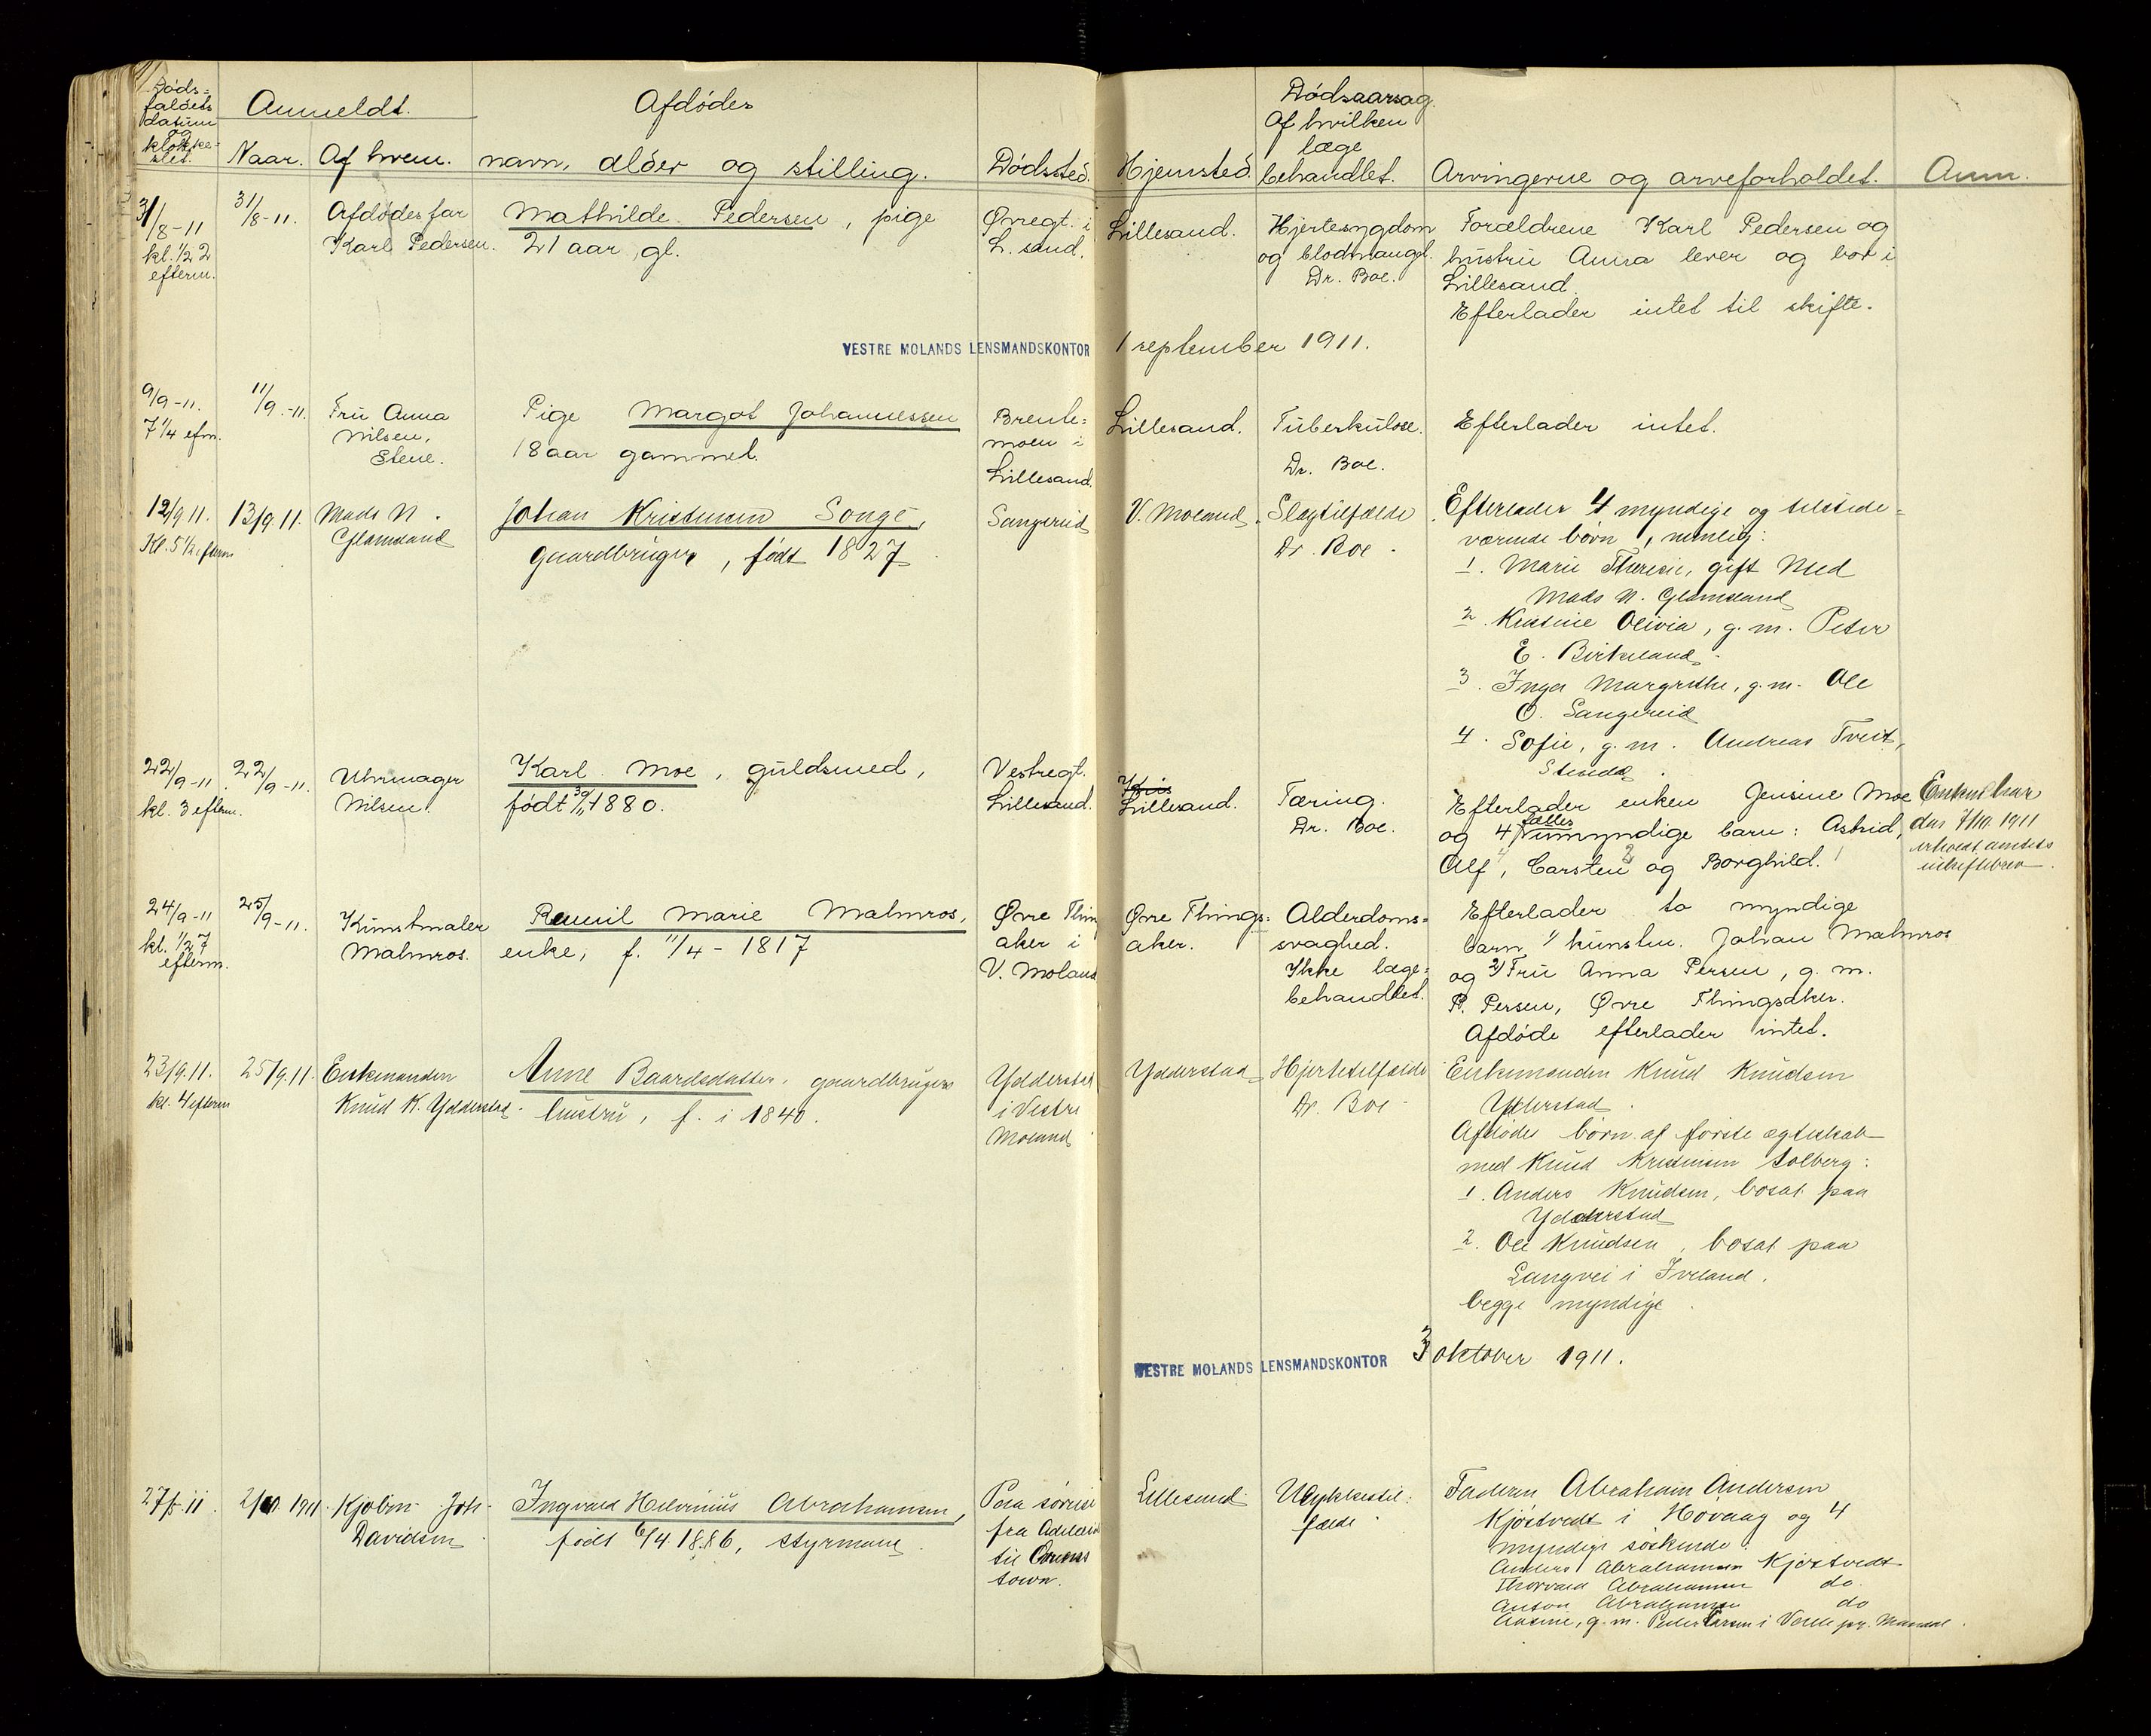 Döds=
faldets
datum
og
klokke-
slet.
Anmeldt.
Naar.
Af hvem.
Afdödes
navn, alder og stilling.
Dödssted.
Hjemsted.
Dödsaarsag.
Af hvilken
læge
behandlet.
Arvingerne og arveforholdet.
Anm.
31/8-11
kl. 1/2 2
efterm.
31/8-11.
Afdödes far
Karl Pedersen.
Mathilde Pedersen, pige
21 aar gl.
Øvregt. i
L. sand.
Lillesand.
Hjertesygdom
og blodmangel.
Dr. Boe.
Forældrene Karl Pedersen og
hustru Anna lever og bor i
Lillesand.
Efterlader intet til skifte.
VESTRE MOLANDS LENSMANDSKONTOR 1 september 1911.
9/9-11.
7 1/4 efm.
11/9.-11.
Fru Anna
Nilsen,
Stene.
Pige Margot Johannessen
18 aar gammel.
Brente=
moen i
Lillesand.
Lillesand.
Tuberkulose.
Dr. Boe.
Efterlader intet.
12/9 11.
Kl. 5 1/2 efterm
13/9.11.
Mads N.
Glamsland
Johan Kristensen Songe,
gaardbruger, födt 1827
Sangereid
V. Moland.
Slagtilfælde
Dr. Boe.
Efterlader 4 myndige og tilstede=
værende börn, nemlig:
1. Marie Theresie, gift med
Mads N. Glamsland
2. Kristine Olivia, g. m. Peter
E. Birkeland.
3. Inga Margrethe, g. m. Ole
O. Sangereid
4. Sofie, g. m. Andreas Tveit,
22/9-11
kl. 3 efterm.
22/9-11.
Uhrmager
Nilsen.
Karl Moe, guldsmed,
födt 30/11 1880.
Vestregt.
Lillesand.
Kris
Lillesand.
Tæring.
Dr. Boe.
Efterlader enken Jensine Moe
og 4 fælles umyndige barn: Astrid,
Alf, Carsten og Borghild.
Enken har
den 7/10. 1911
erholdt amtets
uskiftebrev.
24/9-11
kl. 1/2 7
efterm.
25/9-11.
Kunstmaler
Malmros.
Remil Marie Malmros,
enke, f. 11/4 - 1817
Øvre Thing
aker i
V. Moland
Øvre Things=
aker.
Alderdoms=
svaghed.
Ikke læge=
behandlet.
Efterlader to myndige
barn 1/ kunstm. Johan Malmros
og 2/ Fru Anna Persen, g. m.
P. Persen, Øvre Thingsaker.
Afdöde efterlader intet.
23/9.11.
kl. 4 efterm
25/9.11.
Enkemanden
Knud K. Ydderstad.
Anne Baardsdatter, gaardbrugers
hustru, f. i 1840.
Ydderstad
i Vestre
Moland
Ydderstad
Hjertetilfælde
Dr. Boe.
Enkemanden Knud Knudsen
Ydderstad.
Afdödes börn af förste ægteskab
med Knud Kristensen Solberg:
1. Anders Knudsen, bosat paa
Ydderstad
2. Ole Knudsen, bosat paa
Langvei i Iveland.
begge myndige.
VESTRE MOLANDS LENSMANDSKONTOR 3 oktober 1911.
27/5 11.
2/10. 1911.
Kjöbm. Joh.
Davidsen
Ingvald Helvinius Abrahamsen,
födt 6/4.1886, styrmand.
Paa sörreise
fra Adelaide
til Queens
town.
Lillesand
Ulykkestil=
fælde.
Faderen Abraham Andersen
Kjöstvedt i Hövaag og 4
myndige söskende:
Anders Abrahamsen Kjöstvedt
Thorvald Abrahamsen do.
Anton Abrahamsen do
Aasine, g. m. Peder Larsen i Voelle pr. Mandal.